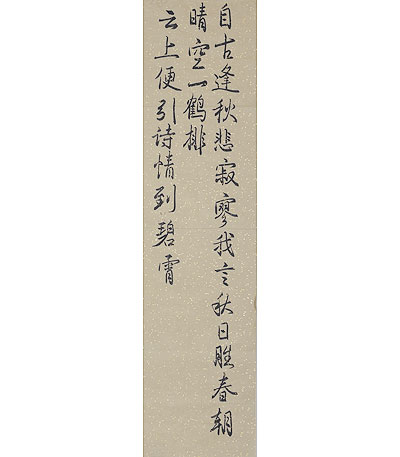 自古逢秋悲寂寥我言秋日胜春朝
晴空一鹤排
云上便引诗情到碧霄